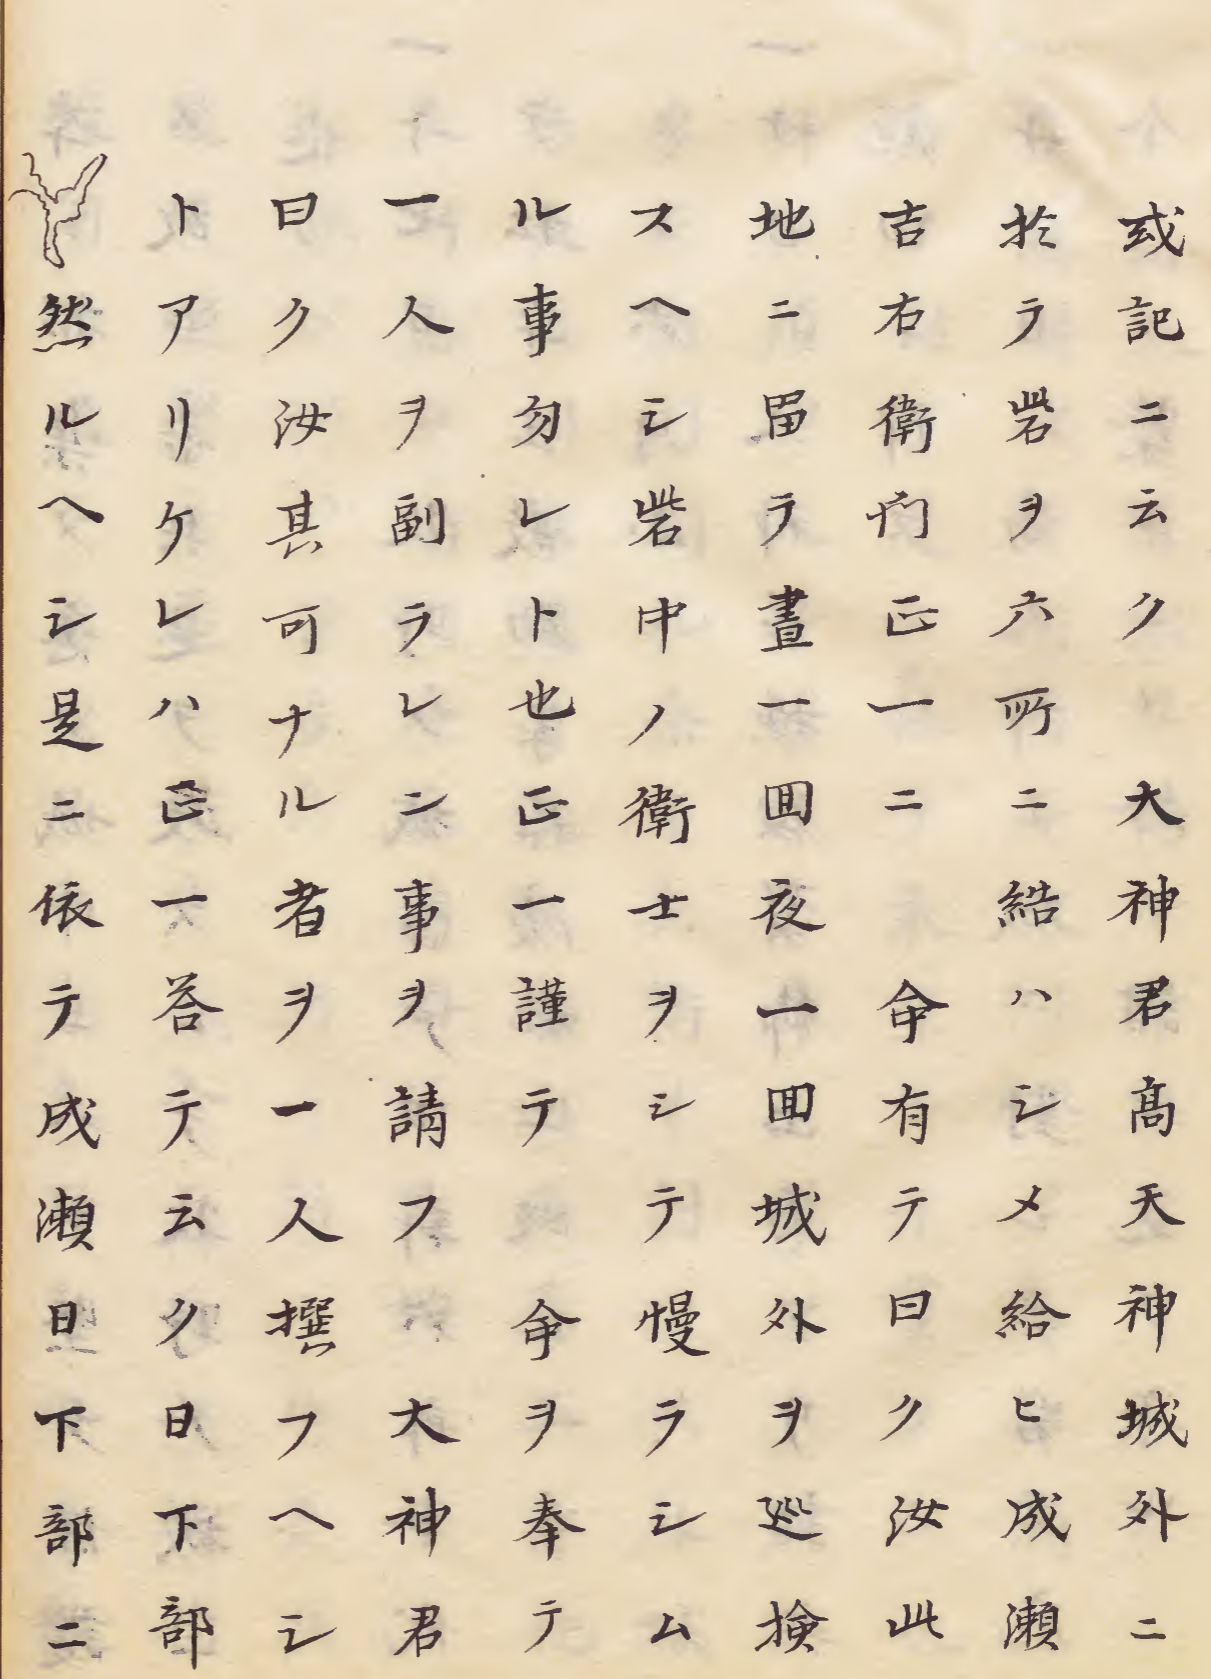 或記ニ云ク　大神君髙天神城外ニ
於テ砦ヲ六所ニ結ハシメ給ヒ成瀬
吉右衛門正一ニ　命有テ曰ク汝此
地ニ畄テ晝一囬夜一囬城外ヲ巡撿
スヘシ砦中ノ衛士ヲシテ慢ラシム
ル事勿レト也正一謹テ　命ヲ奉テ
一人ヲ副ラレン事ヲ請フ　大神君
曰ク汝其可ナル者ヲ一人撰フヘシ
トアリケレハ正一荅テ云ク日下部
然ルヘシ是ニ依テ成瀬日下部ニ